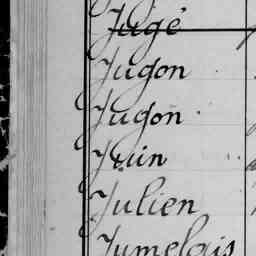 Jugé
Jugon
Jugon
Juin
Julien
Jumelais